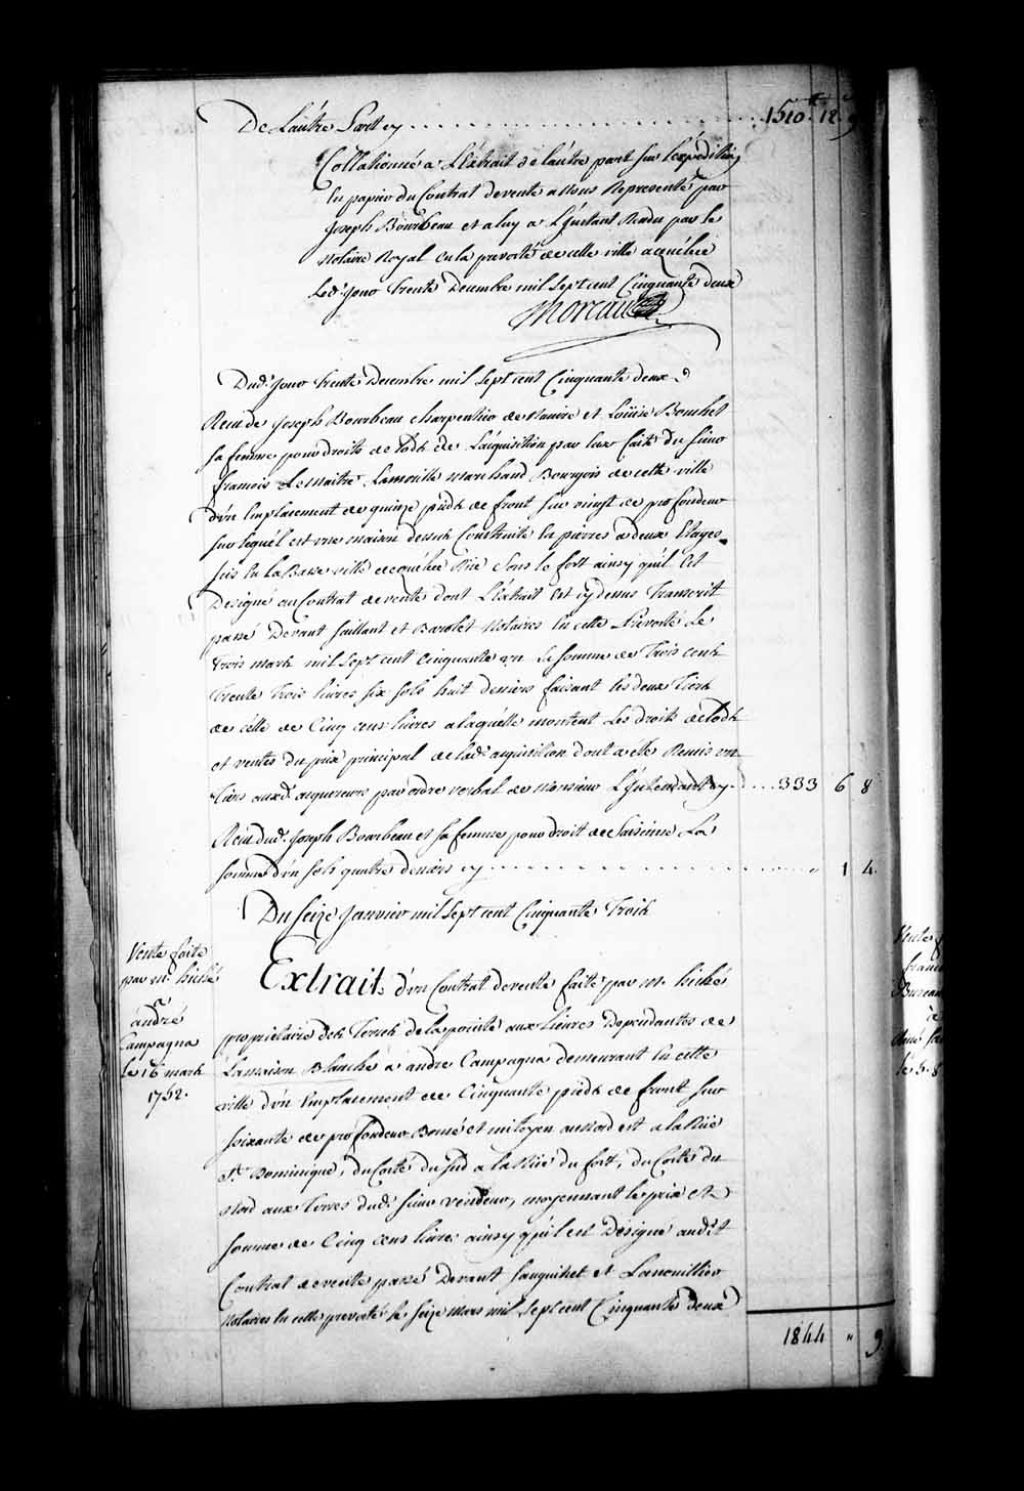 De Lautre Part cy . . . . . . . . . . . . . . . . 1510 ₶ 12 ˢ 9
Collationné a L'Extrait de lautre part sur lexpedition
En papier du Contrat de vente a Nous Representé par
Joseph Bourbeau et a luy a L'Instant Rendu par le
Notaire Royal en la prevosté de cette ville a quebec
Led. Jour trente Decembre mil Sept cent Cinquante deux
Moreau
Dud. Jour trente Decembre mil Sept cent Cinquante deux
Recu de Joseph Bourbeau charpentier de Navire et Loüise Bouchet
sa femme pour droits de lods de Lacquisition par Eux faite du Sieur
francois LeMaitre Lamorille Marchand Bourgois de cette ville
d'un Emplacement de quinze pieds de front sur vingt de profondeur
sur lequel est une maison dessus Construite En pierres a deux Etages
scis En La Basse ville de quebec Rüe Sous le fort ainsy quil Est
Designé au Contrat de vente dont L'Extrait Est cy dessus Transcrit
passé Devant Saillant et Barolet Notaires En cette Prevosté Le
trois mars mil Sept cent Cinquante un la somme de Trois cents
trente Trois livres six sols huit deniers faisant les deux Tiers
de celle de Cinq cens livres a laquelle montent Les droits de lods
et ventes du prix principal de lad. acquisition dont a esté Remis un
tiers auxd. acquereurs par ordre verbal de Monsieur L'Intendant cy . . . . 333 6 8
Recu dud. Joseph Bourbeau et sa femme pour droit de Saisinne La
somme d'un sols quatre deniers cy . . . . . . . . . . . . . . . . " 1 4.
Du Seize Janvier mil Sept cent Cinquante Trois
Vente faite
par mr. hiché
a
andré
Campagna
le 16 mars
1752.
Extrait d'un Contrat de vente faite par Mr. hiché
proprietaire des Terres de la pointe aux Lievres Dependantes de
La maison Blanche a andre Campagna demeurant En cette
ville d'un Emplacement de Cinquante pieds de front sur
soixante de profondeur Borné et mitoyen au Nord est a la Rüe
St. Dominique, du Costé du Sud a la Rüe du fort, du Costé du
Nord aux Terres dud. Sieur vendeur, moyennant le prix et
somme de Cinq cens livres ainsy qu'il est Designé audit
Contrat de vente passé Devant Sanguinet et Lanouillier
Notaires En cette prevosté le Seize Mars mil Sept cent Cinquante deux
1844 " 9